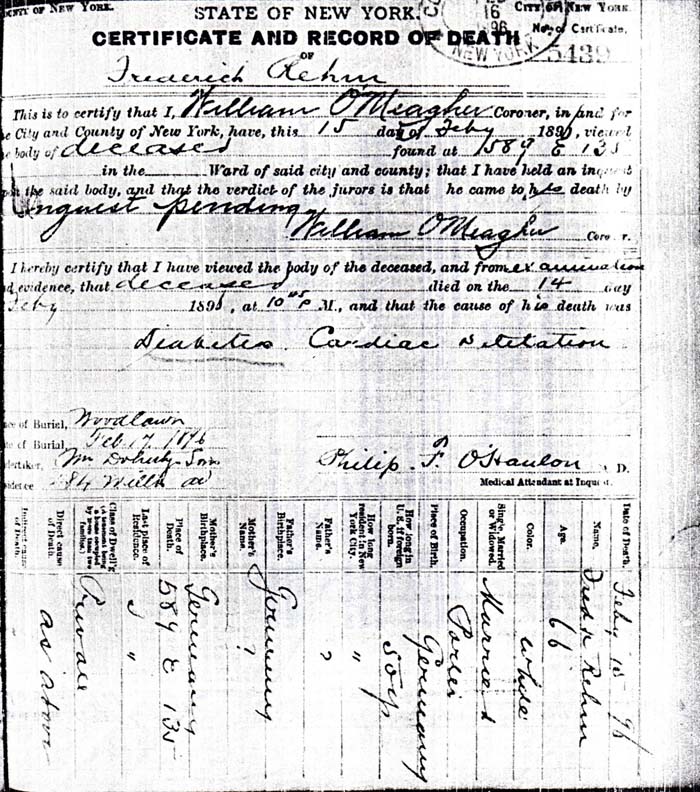 COUNTY OF NEW YORK.
STATE OF NEW YORK.
CITY OF NEW YORK
16
96
NEW YORK
No. of Certificate,
5439
CERTIFICATE AND RECORD OF DEATH
OF
Frederick Rehm
This is to certify that I, William O'Meagher Coroner, in and for
the City and County of New York, have, this 15 day of Feby 189 , viewed
the body of deceased found at 589 E 135
in the Ward of said city and county; that I have held an inquest
upon the said body, and that the verdict of the jurors is that he came to his death by
Inquest pending
William O'Meagher Coroner.
I hereby certify that I have viewed the body of the deceased, and from examination
and evidence, that deceased died on the 14 day
Feby 189 , at 10 P M., and that the cause of his death was
Diabetes. Cardiac
Place of Burial, Woodlawn
Date of Burial, Feb 17 1896
Undertaker, Wm Doherty Sons
Residence 484 Willis av
Philip F. O'Hanlon M. D.
Medical Attendant at Inquest.
Date of Death. Feby 96
Name. Fredk Rehm
Age. 66
Color. White
Single, Married or Widowed. Married
Occupation. Porter
Place of Birth. Germany
How long in U. S. if foreign born. 50 y
How long resident in New York City. "
Father's Name. ?
Father's Birthplace. Germany
Mother's Name. ?
Mother's Birthplace. Germany
Place of Death. 589 E 135
Last place of Residence. "
Class of Dwell'g (A tenement being a house occupied by more than two families.) Private
Direct cause of Death. as above
Indirect cause of Death.